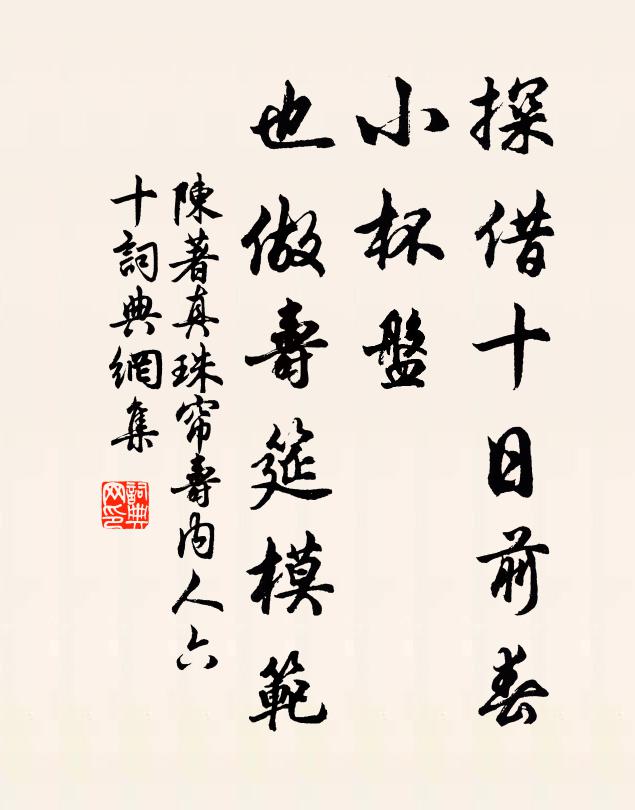 探借十日前春
小杯盤
也做壽筵模範
陳著真珠帘壽内人六
十詞典網集
詞典
网印